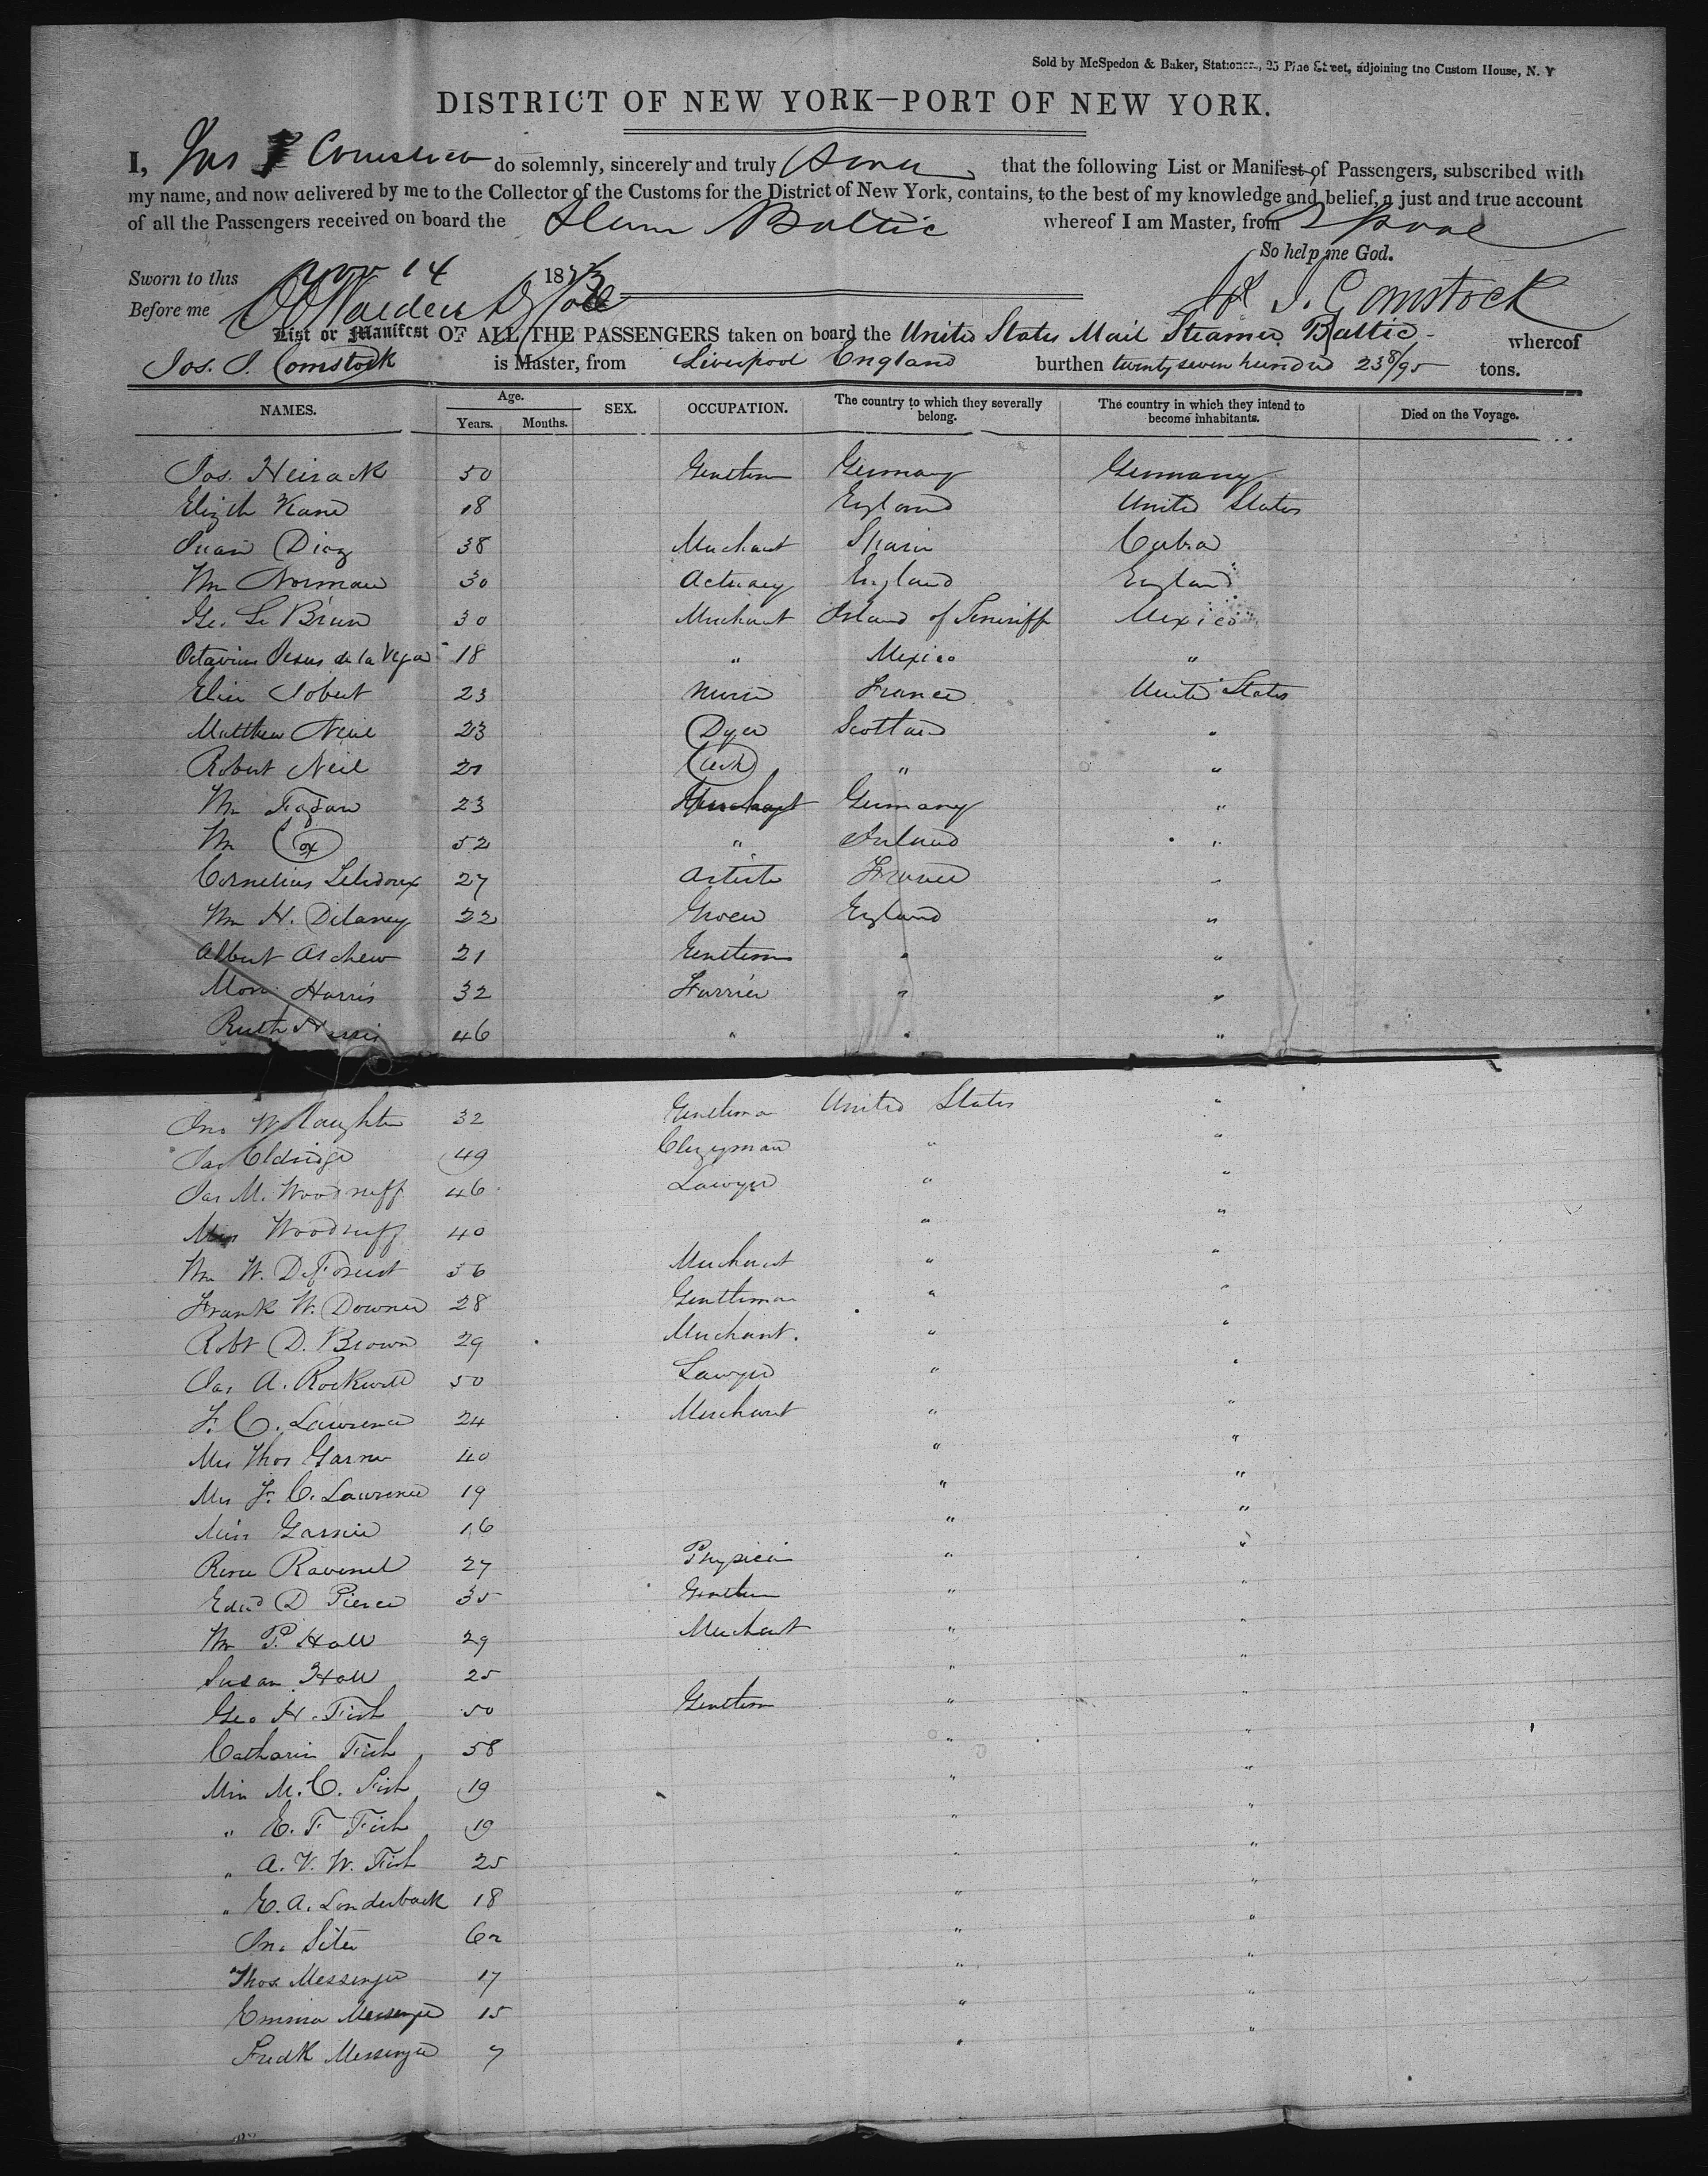 Sold by McSpedon & Baker, Stationers, 25 Pine Street, adjoining the Custom House, N. Y
DISTRICT OF NEW YORK—PORT OF NEW YORK.
I, Jos J Comstock do solemnly, sincerely and truly swear that the following List or Manifest of Passengers, subscribed with
my name, and now delivered by me to the Collector of the Customs for the District of New York, contains, to the best of my knowledge and belief, a just and true account
of all the Passengers received on board the Steamr Baltic whereof I am Master, from Lpool
So help me God.
Sworn to this Nov 14 1853 Jos J. Comstock
Before me
List or Manifest OF ALL THE PASSENGERS taken on board the United States Mail Steamer Baltic whereof
Jos. J. Comstock is Master, from Liverpool England burthen twenty seven hundred 23 8/95 tons.
NAMES. Age. Years. Months. SEX. OCCUPATION. The country to which they severally belong. The country in which they intend to become inhabitants. Died on the Voyage.
Jos. 50 Gentlemn Germany Germany
Elizth Kane 18 England United States
Juan Diaz 38 Merchant Spain Cuba
Wm Norman 30 Actuary England England
Geo Le Brun 30 Merchant Island of Teneriff Mexico
Octavius Jesus de la Vega 18 " Mexico "
Elise Jobert 23 Nurse France United States
Matthew Neil 23 Dyer Scotland "
Robert Neil 21 Clerk " "
Wm Fagan 23 Merchant Germany "
Wm Cox 52 " Ireland "
Cornelius Ledoux 27 Artiste France "
Wm H. Delaney 22 Grocer England "
Albert Aschew 21 Gentlemn " "
Morris Harris 32 Furrier " "
Ruth Harris 46 " " "
Jno W Slaughter 32 Gentleman United States "
Jas Eldridge 49 Clergyman " "
Jas M. Woodruff 46 Lawyer " "
Mrs Woodruff 40 " "
Wm W. DeForest 36 Merchant " "
Frank W. Downer 28 Gentleman " "
Robt D. Brown 29 Merchant. " "
Jas A. Rockwell 50 Lawyer " "
F. C. Lawrence 24 Merchant " "
Mrs Thos Garner 40 " "
Mrs F. C. Lawrence 19 " "
Miss Garner 16 " "
Rene Ravenel 27 Physician " "
Edwd D Pierce 35 Gentlemn " "
Wm P. Hall 29 Merchant " "
Susan Hall 25 " "
Geo H. Fish 50 Gentlemn " "
Catharine Fish 58 " "
Miss M. C. Fish 19 " "
" E. F Fish 19 " "
" A. V. W. Fish 25 " "
" E. A. Londerback 18 " "
Jno Siter 62 " "
Thos Messenger 17 " "
Emma Messenger 15 " "
Fredk Messenger 7 " "